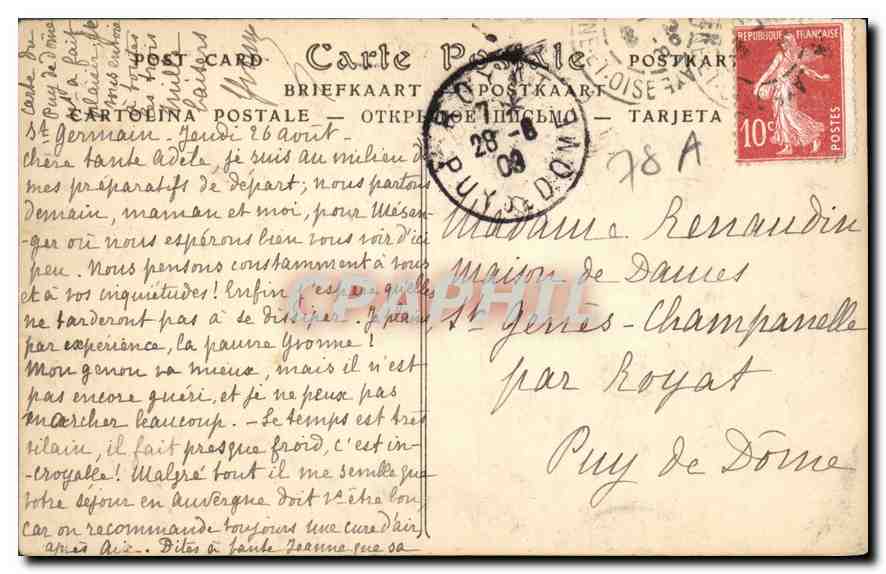 POST CARD
Carte Postale
POSTKARTE
BRIEFKAART - POSTKAART
CARTOLINA POSTALE - ОТКРЫТОЕ ПИСЬМО - TARJETA
REPUBLIQUE FRANÇAISE
10c
POSTES
ROYAT
7
28 - 8
09
PUY DE DOME
OISE
78 A
St Germain - Jeudi 26 août -
Chère tante Adèle, je suis au milieu de
mes préparatifs de départ ; nous partons
demain, maman et moi, pour Mésan-
ger où nous espérons bien vous voir d'ici
peu. Nous pensons constamment à vous
et à vos inquiétudes ! Enfin, j'espère qu'elles
ne tarderont pas à se dissiper. Je sais
par expérience, la pauvre Yvonne !
Mon genou va mieux, mais il n'est
pas encore guéri, et je ne peux pas
marcher beaucoup. - Le temps est très
vilain, il fait presque froid, c'est in-
-croyable ! Malgré tout il me semble que
votre séjour en Auvergne doit être bon,
car on recommande toujours une cure d'air,
après Aix. Dites à tante Jeanne que sa
carte du
Puy de Dôme
m'a fait
plaisir. Je
à toutes
les trois
mille
baisers
CPAPHIL
Madame Renaudin
Maison de Dames
St Genès-Champanelle
par Royat
Puy de Dôme